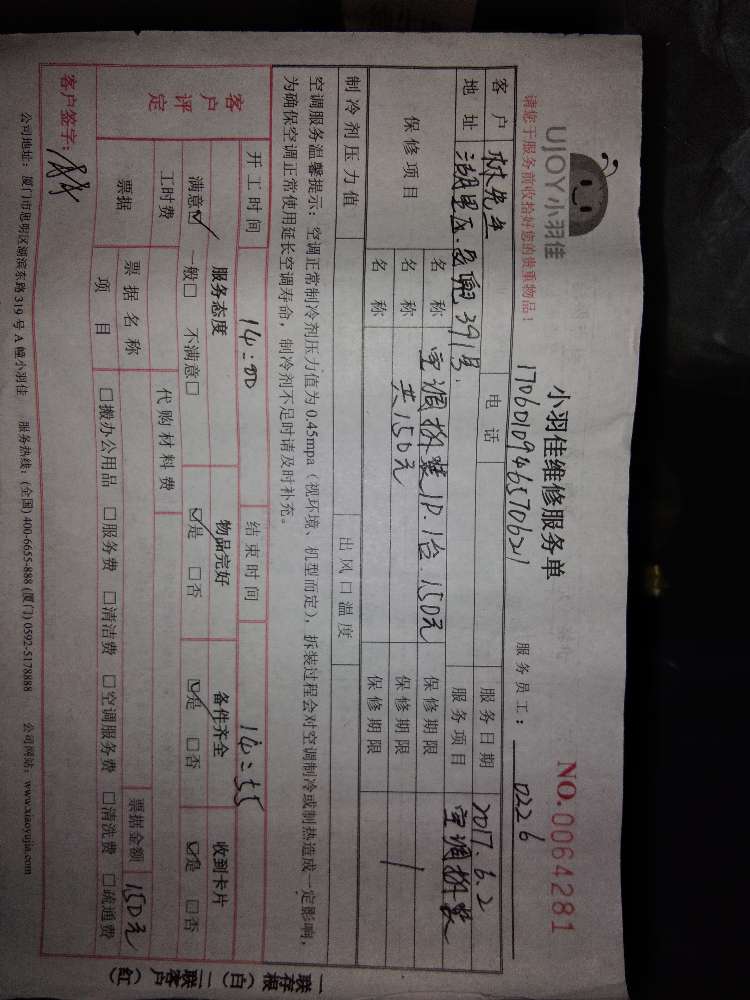 UJOY小羽佳
小羽佳维修服务单
NO.0064281
请您于服务前收拾好您的贵重物品！
1706010946570621
服务员工： 0226
客户 林先生 电话 服务日期 2017.6.2
地址 湖里区 391号 服务项目 空调拆装
保修项目 名称 空调拆装1P.1台.150元 保修期限
名称 共150元 保修期限
名称 保修期限
制冷剂压力值 出风口温度
空调服务温馨提示：空调正常制冷剂压力值为0.45mpa（视环境、机型而定），拆装过程会对空调制冷或制热造成一定影响，
为确保空调正常使用延长空调寿命，制冷剂不足时请及时补充。
开工时间 14:00 结束时间 14:55
客户评定 服务态度 物品完好 备件齐全 收到卡片
满意☑ 一般□ 不满意□ ☑是 □否 ☑是 □否 ☑是 □否
工时费 代购材料费
票据 票据名称 票据金额 150元
项目 □搬办公用品 □服务费 □清洁费 □空调服务费 □清洗费 □疏通费
客户签字：
公司地址：厦门市思明区湖滨东路319号A幢小羽佳 服务热线：(全国) 400-6655-888 (厦门) 0592-5178888 公司网站：www.xiaoyujia.com
一联存根（白）二联客户（红）